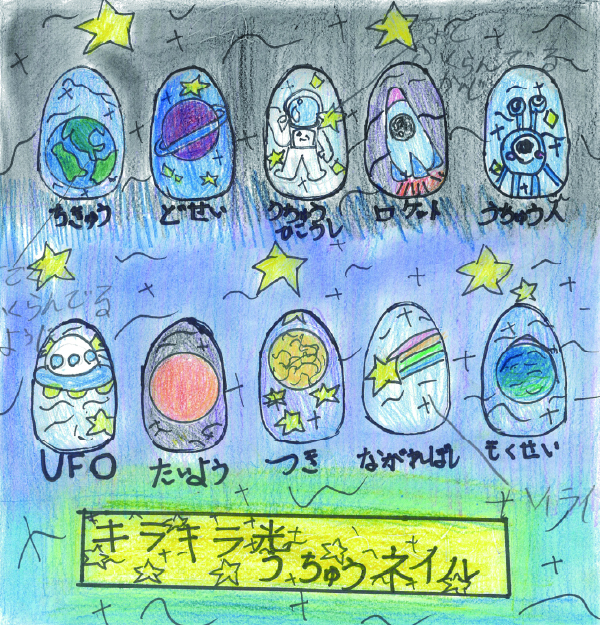 くらんでる
ちきゅう
どせい
うちゅう
ひこうし
ロケット
うちゅう人
くらんでる
ように
UFO
たいよう
つき
ながれぼし
もくせい
キラキラ
うちゅうネイル